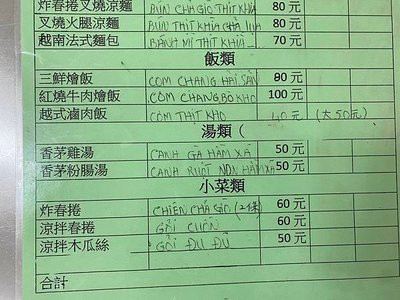 炸春捲叉燒涼麵 BÚN CHẢ GIÒ THỊT KHÌA 80 元
叉燒火腿涼麵 BÚN THỊT KHÌA CHẢ LỤA 80 元
越南法式麵包 BÁNH MÌ THỊT KHÌA 70 元
飯類
三鮮燴飯 CƠM CHANG HẢI SẢN 80 元
紅燒牛肉燴飯 CƠM CHANG BÒ KHO 100 元
越式滷肉飯 CƠM THỊT KHO 40元 (大50元)
湯類 (
香茅雞湯 CANH GÀ HẦM XẢ 50 元
香茅粉腸湯 CANH RUỘT NON HẦM XẢ 50 元
小菜類
炸春捲 CHIÊN CHẢ GIÒ (2條) 60 元
涼拌春捲 GỎI CUỐN 60 元
涼拌木瓜絲 GỎI ĐU ĐỦ 50 元
合計